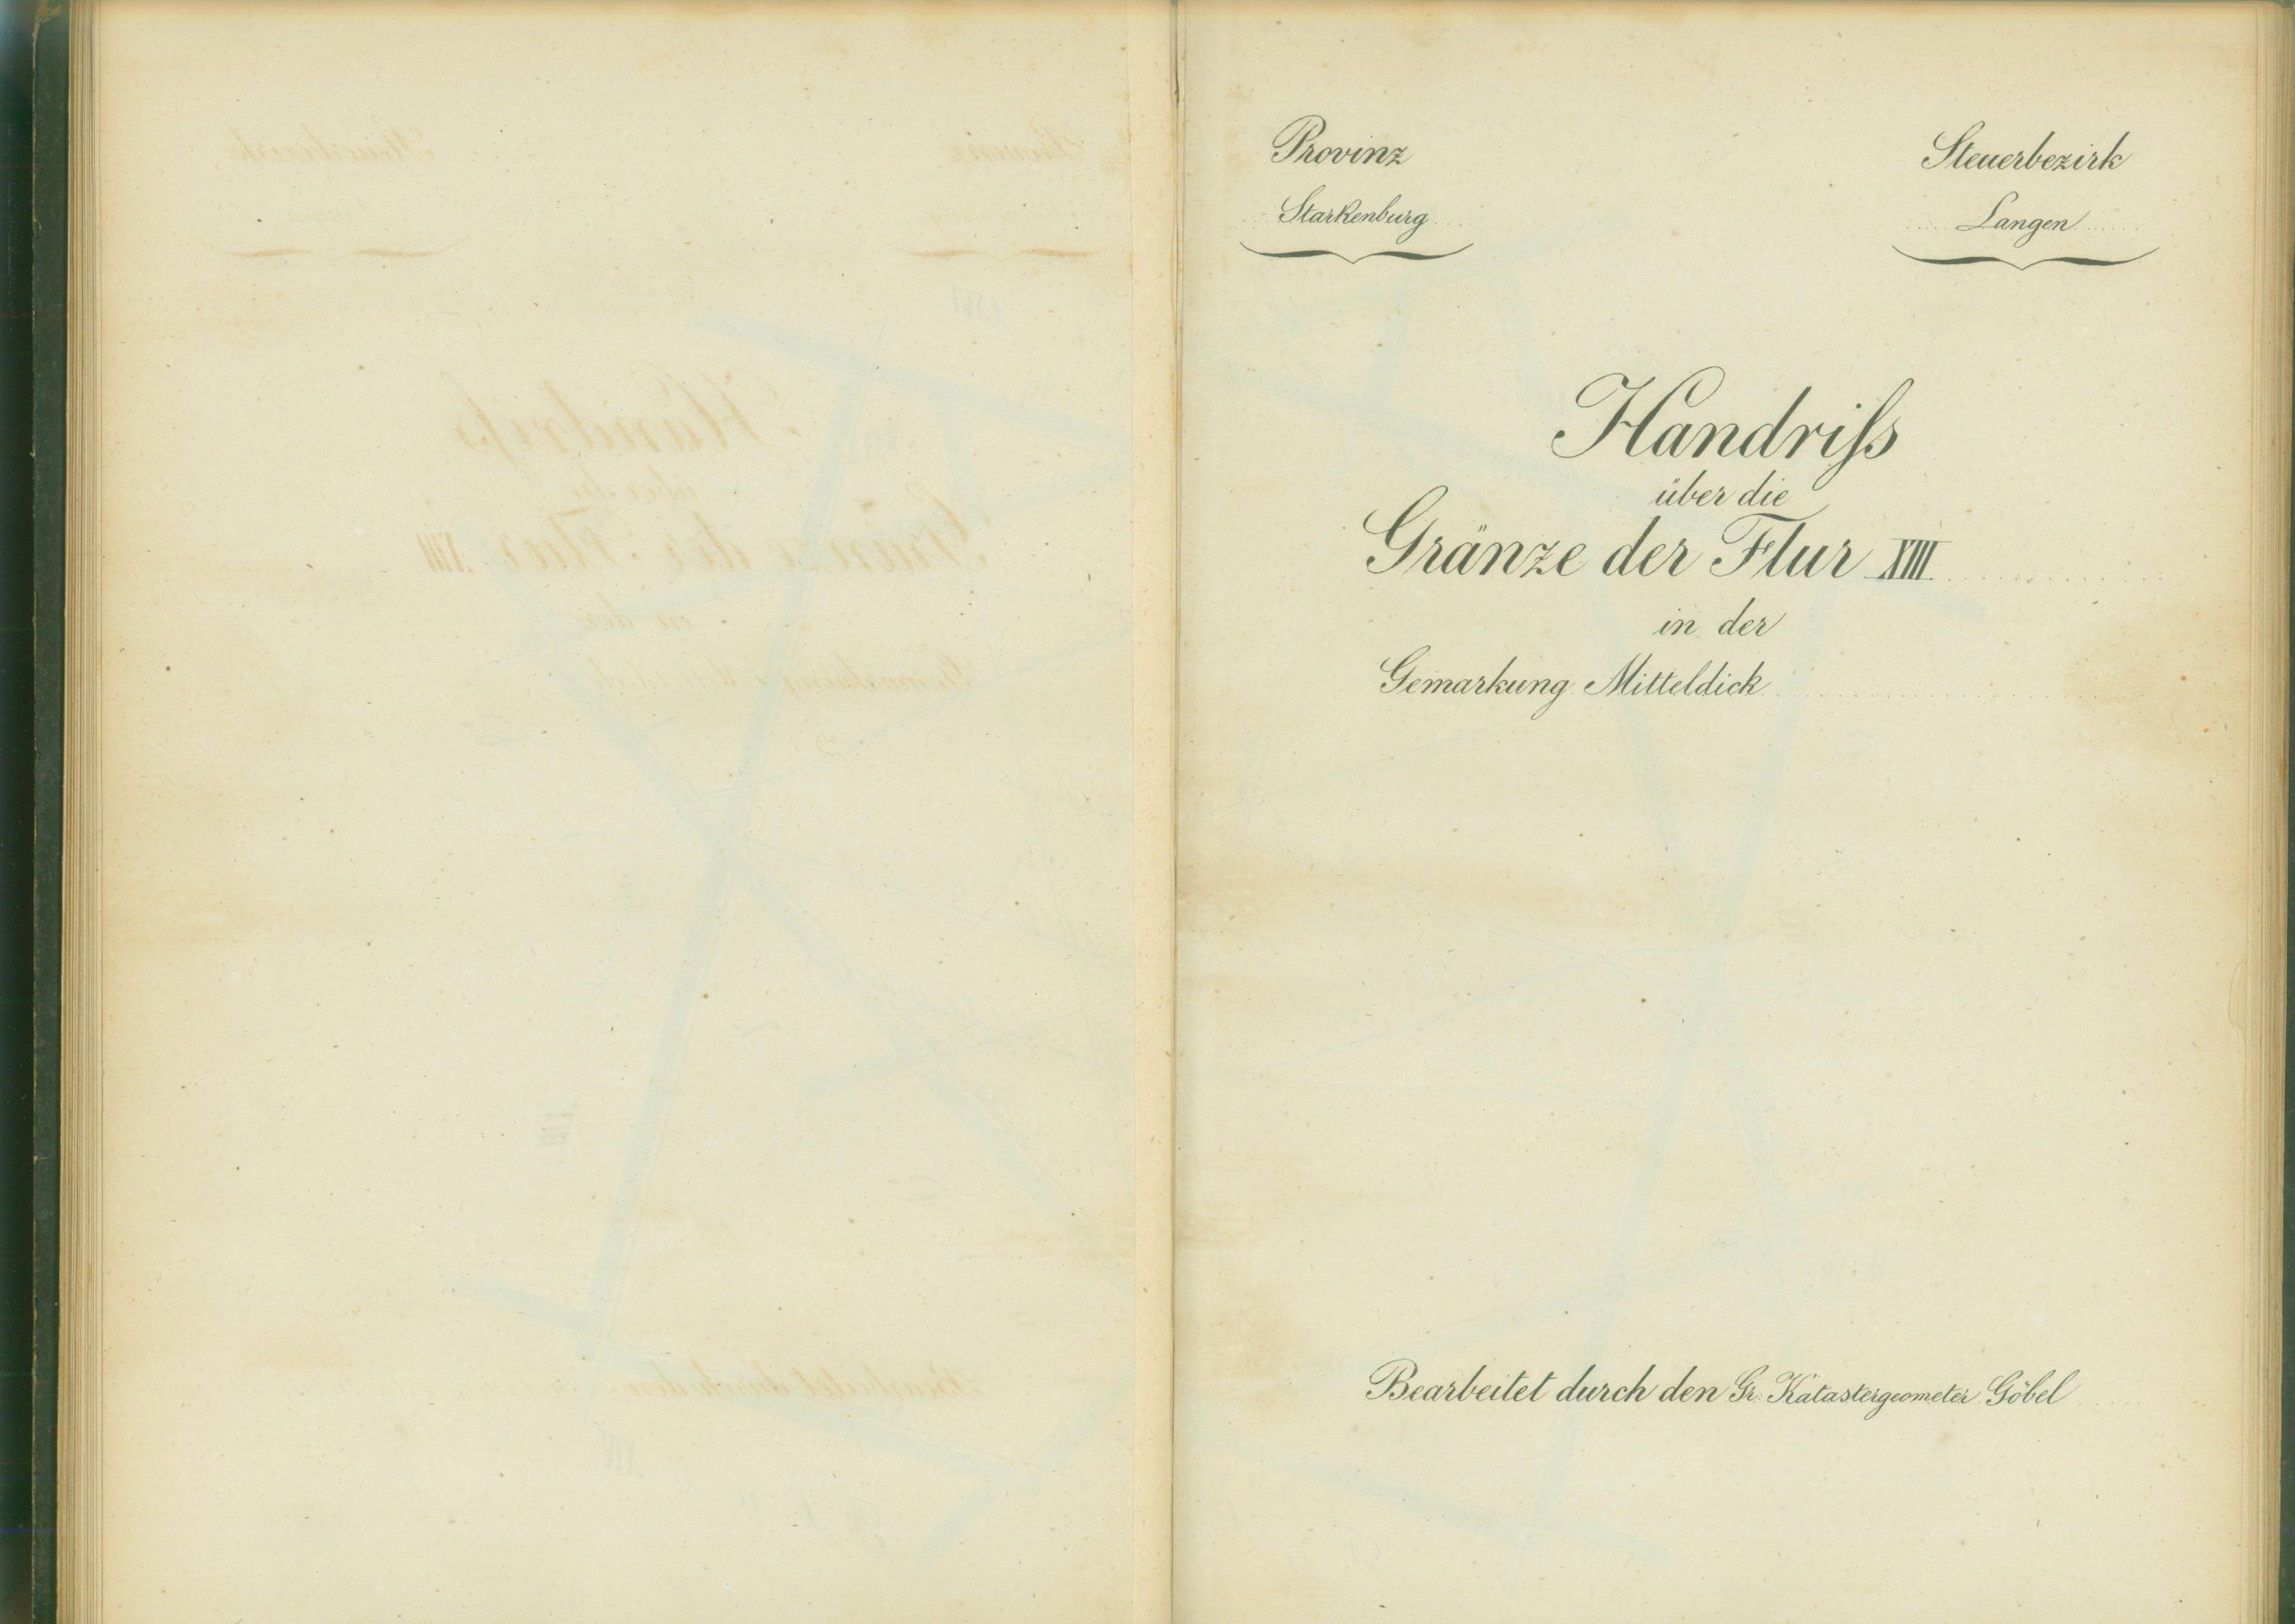 Provinz
Starkenburg
Steuerbezirk
Langen
Handriſs
über die
Gränze der Flur XIII
in der
Gemarkung Mitteldick
Bearbeitet durch den Gr. Katastergeometer Göbel